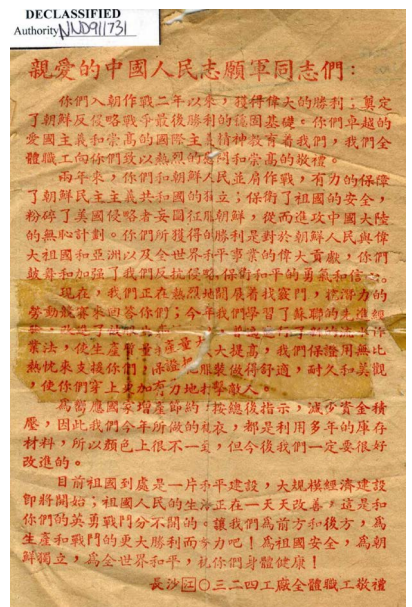 DECLASSIFIED
Authority NND911731
親愛的中國人民志願軍同志們：
你們入朝作戰二年以來，獲得偉大的勝利；奠定
了朝鮮反侵略戰爭最後勝利的鞏固基礎。你們卓越的
愛國主義和崇高的國際主義精神教育着我們，我們全
體職工向你們致以熱烈的 和崇高的敬禮。
兩年來，你們和朝鮮人民並肩作戰，有力的保障
了朝鮮民主主義共和國的獨立；保衛了祖國的安全，
粉碎了美國侵略者妄圖征服朝鮮，從而進攻中國大陸
的無恥計劃。你們所獲得的勝利是對於朝鮮人民與偉
大祖國和亞洲以及全世界和平事業的偉大貢獻，你們
鼓舞和加强了我們反抗侵略，保衛和平的勇氣和信心。
現在，我們正在熱烈地開展着找竅門，挖潛力的
勞動競賽來回答你們；今年我們學習了蘇聯的先進經
業法，使生產質量 大大提高，我們保證用無比
熱忱來支援你們！保證把 服裝做得舒適，耐久和美觀
，使你們穿上更加有力地打擊敵人。
爲響應國家增產節約，按總後指示，減少資金積
壓，因此我們今年所做的 衣，都是利用多年的庫存
材料，所以顏色上很不一致，但今後我們一定要很好
改進的。
目前祖國到處是一片和平建設，大規模經濟建設
即將開始；祖國人民的生活正在一天天改善，這是和
你們的英勇戰鬥分不開的。讓我們爲前方和後方，爲
生產和戰鬥的更大勝利而努力吧！爲祖國安全，爲朝
鮮獨立，爲全世界和平，祝你們身體健康！
長沙 〇三二四工廠全體職工敬禮